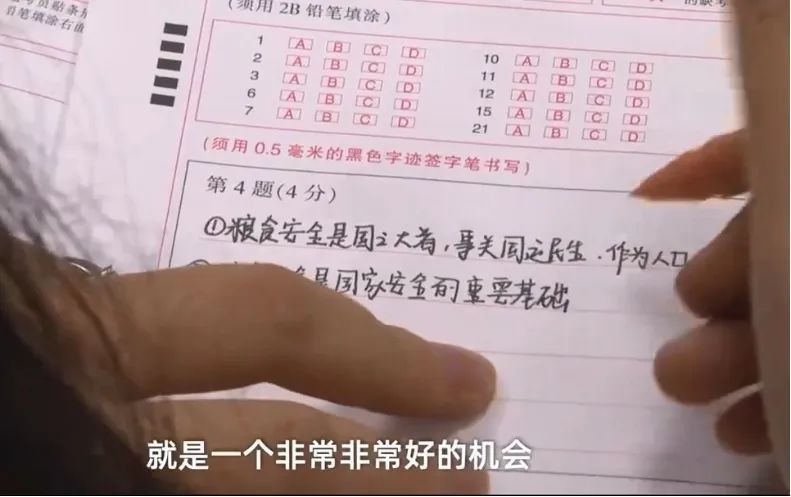 考员贴条形
铅笔填涂右面
(须用 2B 铅笔填涂)
的缺考
1 A B C D
2 A B C D
3 A B C D
6 A B C D
7 A B C D
10 A B C D
11 A B C D
12 A B C D
15 A B C D
21 A B C D
(须用 0.5 毫米的黑色字迹签字笔书写)
第 4 题(4 分)
①粮食安全是国之大者,事关国运民生.作为人口
是国家安全的重要基础
就是一个非常非常好的机会